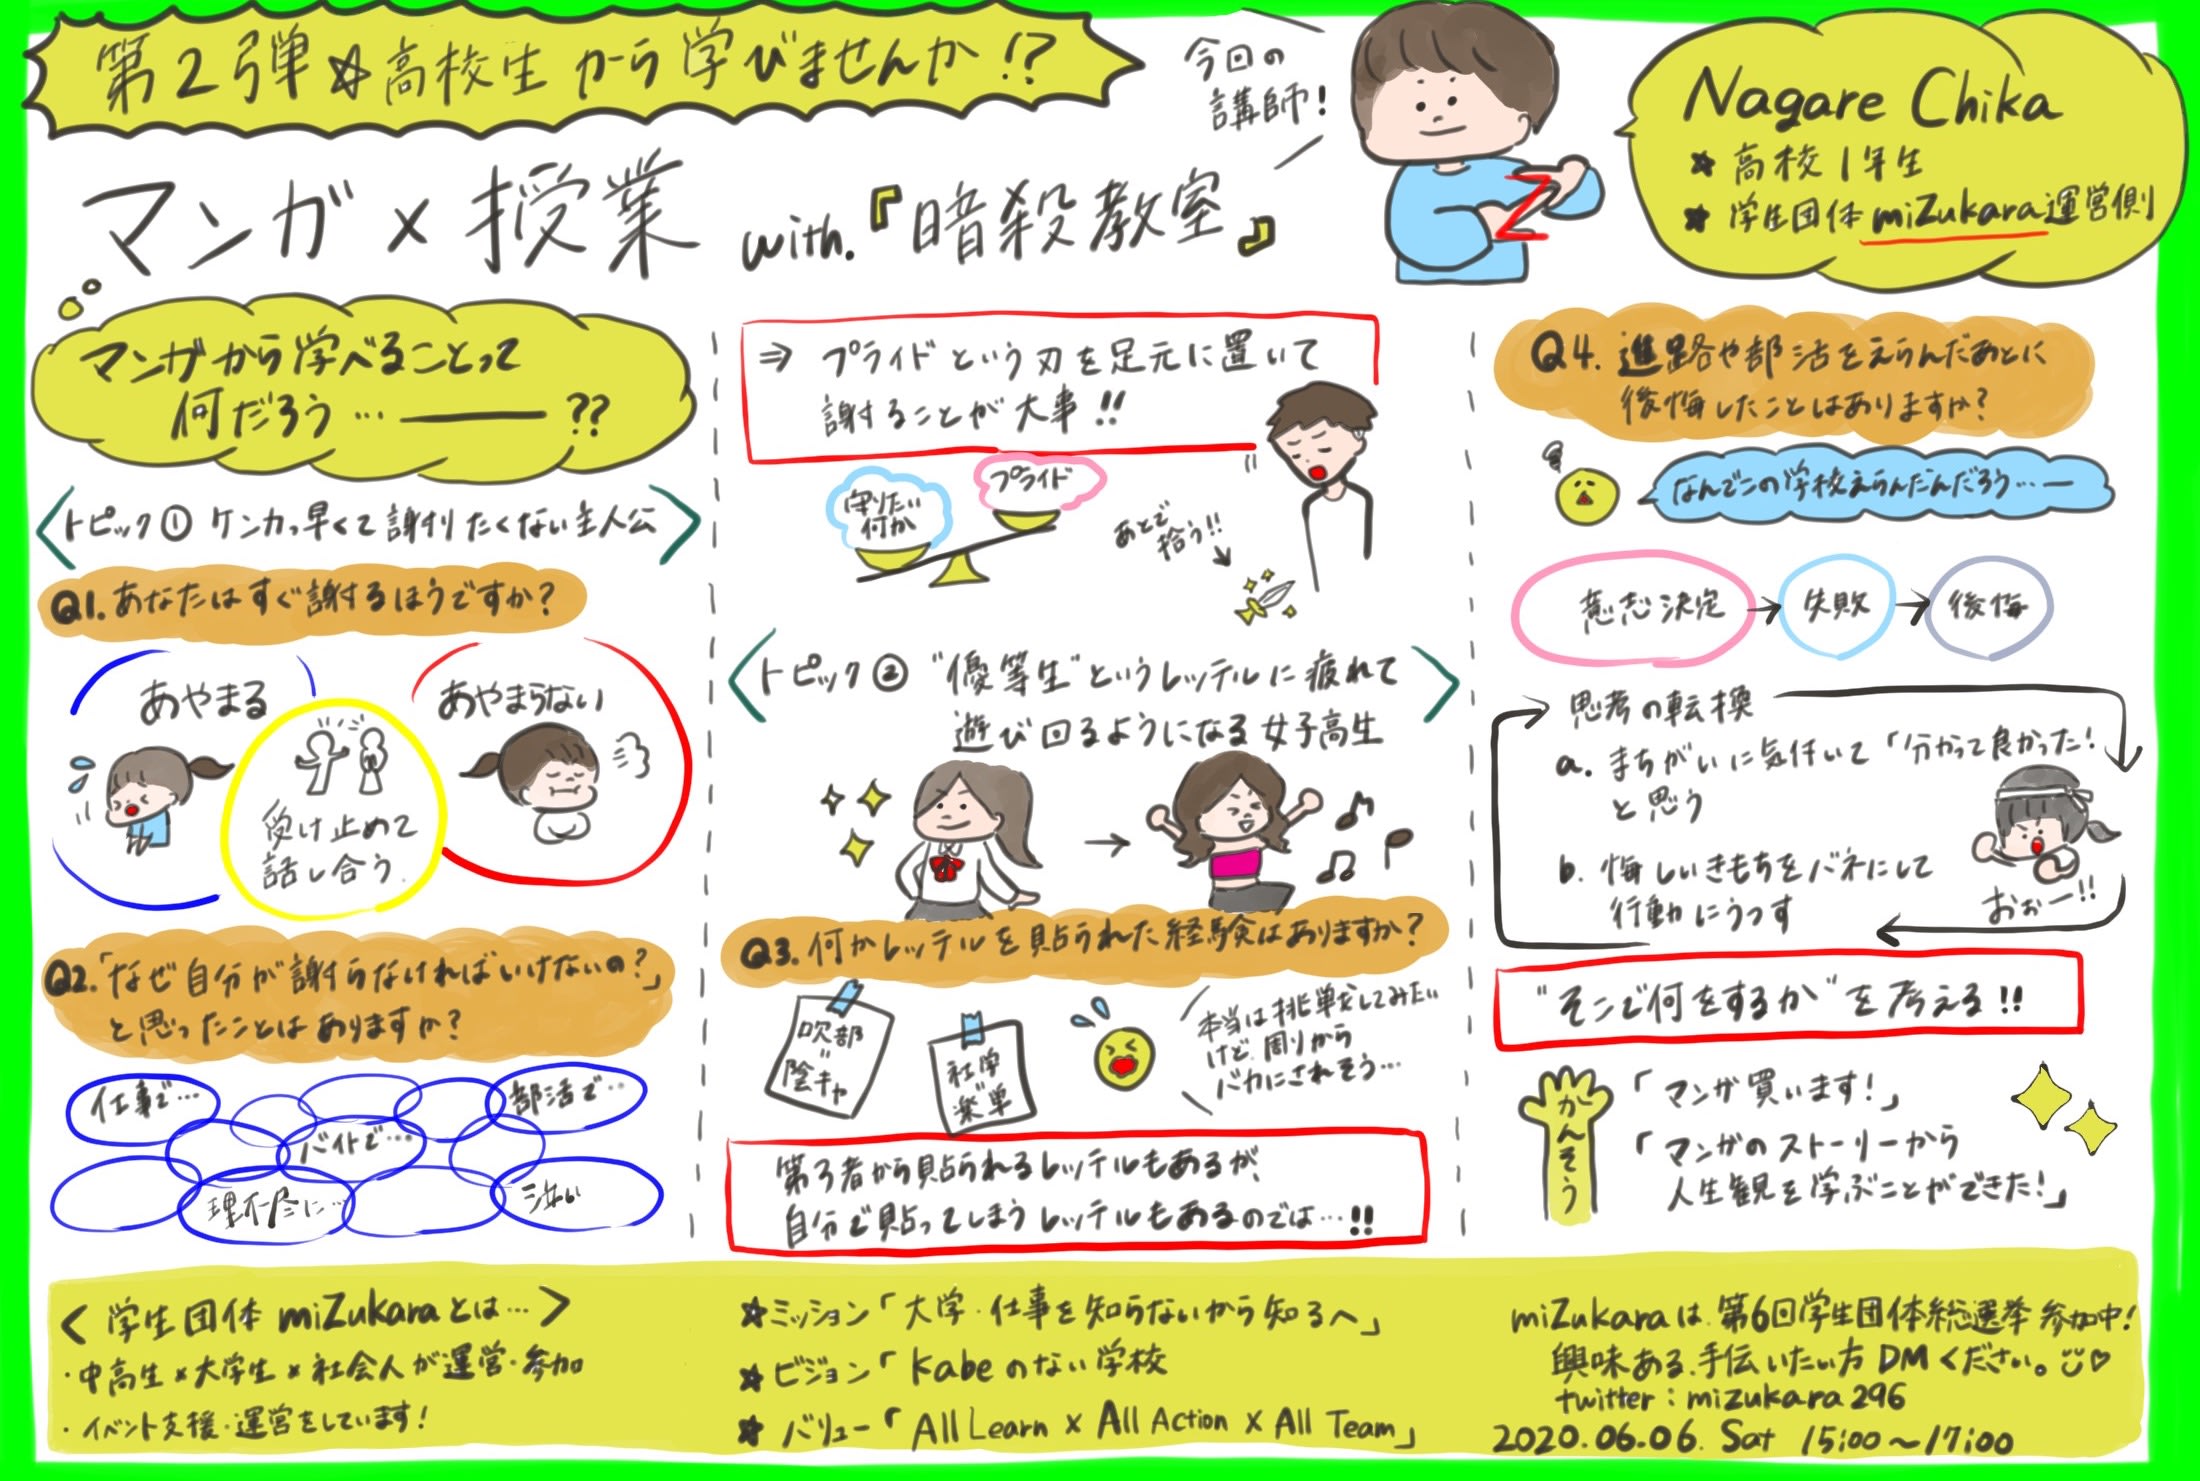 第2弾☆高校生から学びませんか!?
今回の
講師!
Nagare Chika
☆ 高校1年生
☆ 学生団体miZukara運営側
マンガ×授業 with.『暗殺教室』
マンガから学べることって
何だろう…――??
<トピック① ケンカっ早くて謝りたくない主人公>
Q1.あなたはすぐ謝るほうですか?
あやまる
あやまらない
受け止めて
話し合う.
Q2.「なぜ自分が謝らなければいけないの?」
と思ったことはありますか?
仕事で…
部活で…
バイトで…
理不尽に…
⇒ プライドという刃を足元に置いて
謝ることが大事!!
守りたい
何か
プライド
あとで
拾う!!
<トピック② "優等生"というレッテルに疲れて
遊び回るようになる女子高生>
Q3.何かレッテルを貼られた経験はありますか?
吹部
=
陰キャ
社学
楽単
本当は挑戦してみたい
けど、周りから
バカにされそう…
第3者から貼られるレッテルもあるが、
自分で貼ってしまうレッテルもあるのでは…!!
Q4.進路や部活をえらんだあとに
後悔したことはありますか?
なんでこの学校えらんだんだろう…ー
意志決定→失敗→後悔
思考の転換
a. まちがいに気付いて「分かって良かった!
と思う
b. 悔しいきもちをバネにして
行動にうつす
おぉー!!
"そこで何をするか"を考える!!
かんそう
「マンガ買います!」
「マンガのストーリーから
人生観を学ぶことができた!」
<学生団体miZukaraとは…>
・中高生×大学生×社会人が運営・参加
・イベント支援・運営をしています!
☆ミッション「大学・仕事を知らないから知るへ」
☆ビジョン「Kabeのない学校
☆ バリュー「All Learn × All Action × All Team」
miZukaraは、第6回学生団体総選挙参加中!
興味ある、手伝いたい方DMください。
twitter:mizukara296
2020.06.06. Sat 15:00〜17:00